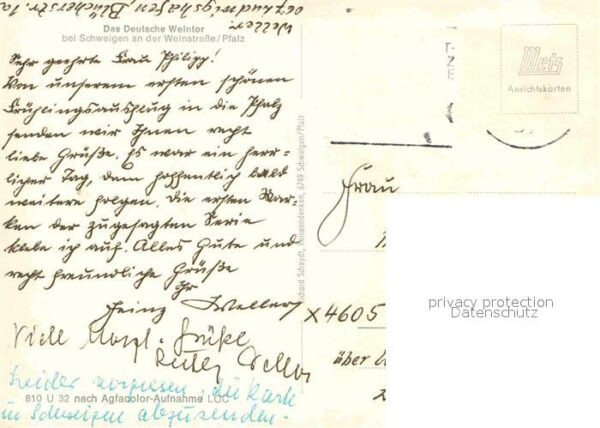 Weller
Ludwigshafen Blücherstr. 1a
Das Deutsche Weintor
bei Schweigen an der Weinstraße/Pfalz
Sehr geehrte Frau Philipp!
Von unserem ersten schönen
Frühlingsausflug in die Pfalz
senden wir Ihnen recht
liebe Grüße. Es war ein herr-
licher Tag, dem hoffentlich bald
weitere folgen. Die ersten Mar-
ken der zugesagten Serie
klebe ich auf. Alles Gute und
recht freundliche Grüße
Ihr
Heinz Weller
Viele Grüße
Weller
Leider vergessen, die Karte
in Schweigen abzusenden.
810 U 32 nach Agfacolor-Aufnahme LOC
Richard Scheydt, Reiseandenken, 6749 Schweigen/Pfalz
Metz
Ansichtskarten
Frau
X4605
über
privacy protection
Datenschutz